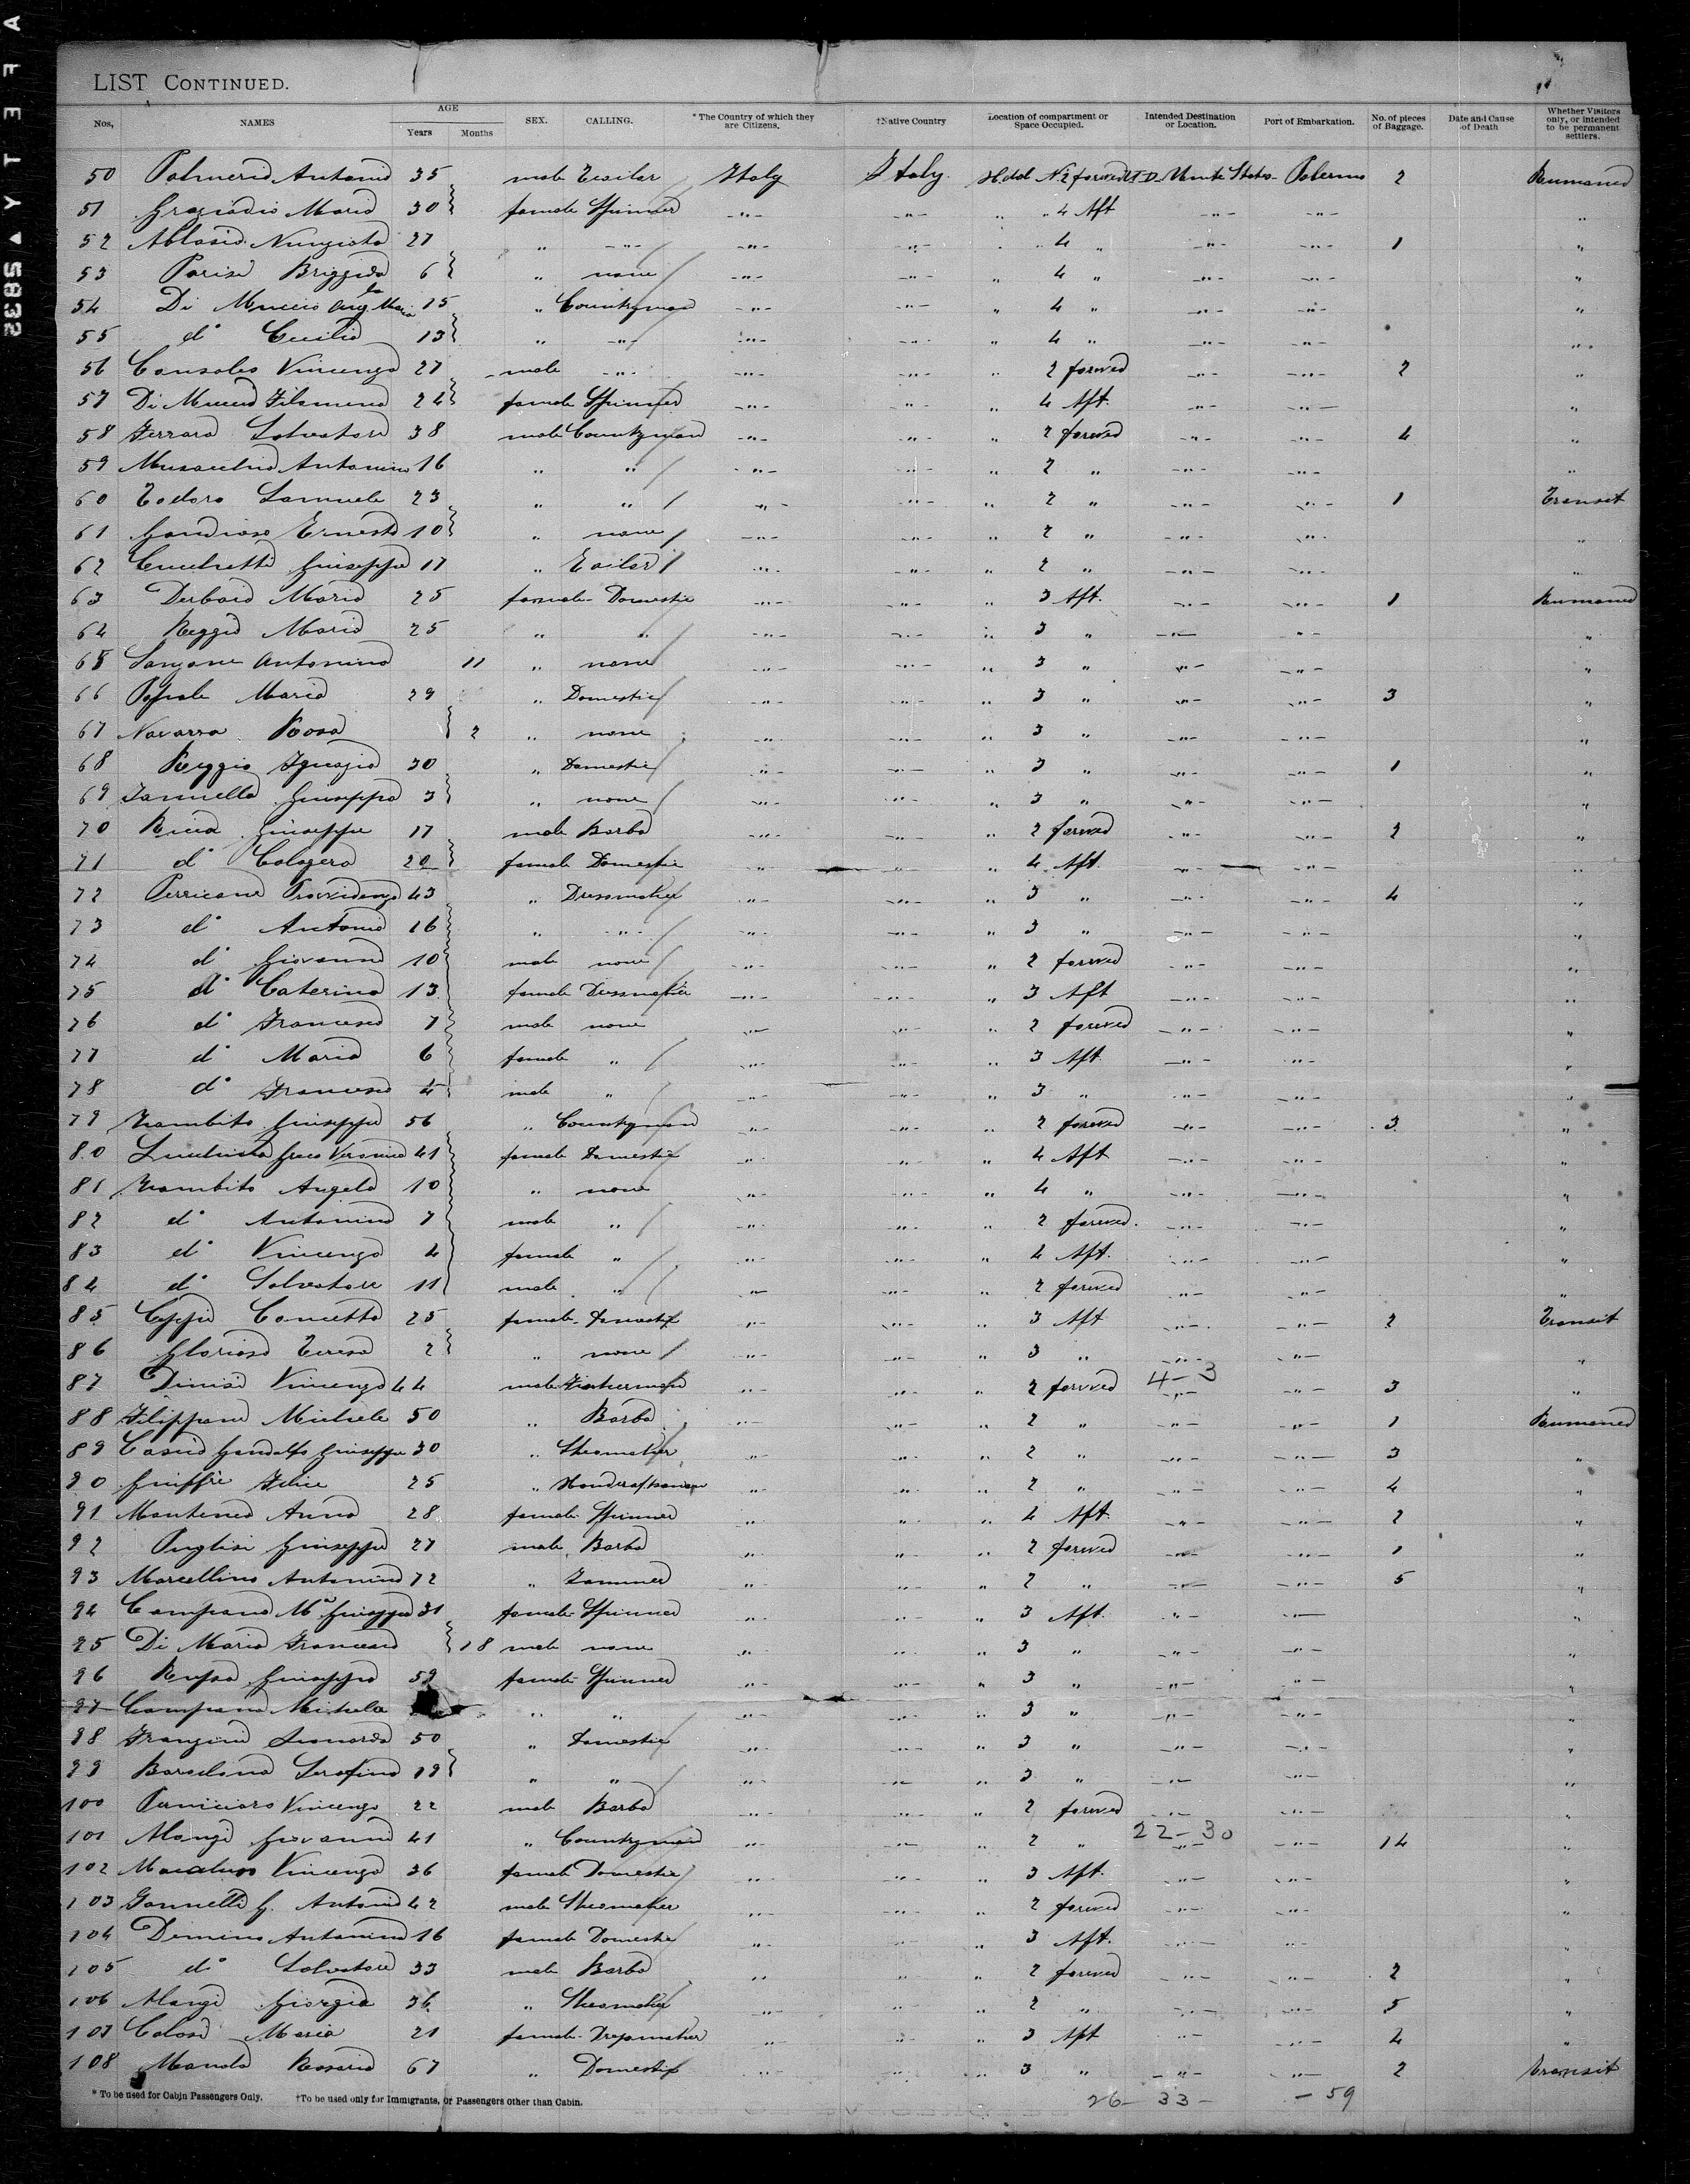 SAFETY ▲ 5832
LIST CONTINUED.
Nos, NAMES AGE Years Months SEX. CALLING. * The Country of which they are Citizens. †Native Country Location of compartment or Space Occupied. Intended Destination or Location. Port of Embarkation. No. of pieces of Baggage. Date and Cause of Death Whether Visitors only, or intended to be permanent settlers.
50 Antonio 35 male Italy Italy N 2 forwed Unite States Palermo 2
51 Graziadio Maria 30 female Spinner -"- -"- " " 4 Aft -"- -"- "
52 Nunziata 27 " -"- -"- -"- " 4 " -"- -"- 1 "
53 Parisi Briggida 6 " none -"- -"- " 4 " -"- -"- "
54 Di Muccio Maria 15 " Countryman -"- -"- " 4 " -"- -"- "
55 d° Cecilia 13 " -"- -"- -"- " 4 " -"- -"- "
56 Consales Vincenzo 27 male -"- -"- -"- " 2 forwed -"- -"- 2 "
57 Di Muccio Filomena 24 female Spinner -"- -"- " 4 Aft. -"- -"- "
58 Ferrara Salvatore 38 male Countryman -"- -"- " 2 forwed -"- -"- 4 "
59 Antonino 16 " " -"- -"- " 2 " -"- -"- "
60 Todoro Samuele 23 " " -"- -"- " 2 " -"- -"- 1 Transit
61 Gandioso Ernesto 10 " none -"- -"- " 2 " -"- -"- "
62 Giuseppe 17 " -"- -"- " 2 " -"- -"- "
63 Maria 25 female Domestic -"- -"- " 3 Aft. -"- -"- 1
64 Reggio Maria 25 " " -"- -"- " 3 " -"- -"- "
65 Antonina 11 " none -"- -"- " 3 " -"- -"- "
66 Maria 29 " Domestic -"- -"- " 3 " -"- -"- 3 "
67 Navarra Rosa 2 " none -"- -"- " 3 " -"- -"- "
68 Reggio Ignazia 30 " Domestic -"- -"- " 3 " -"- -"- 1 "
69 Iannello Giuseppa 3 " none -"- -"- " 3 " -"- -"- "
70 Ricca Giuseppe 17 male Barba -"- -"- " 2 forwed -"- -"- 2 "
71 d° Calogera 20 female Domestic -"- -"- " 4 Aft. -"- -"- "
72 Perricone Provvidenza 43 " Dressmaker -"- -"- " 3 " -"- -"- 4 "
73 d° Antonia 16 " -"- -"- -"- " 3 " -"- -"- "
74 d° Giovanni 10 male none -"- -"- " 2 forwed -"- -"- "
75 d° Caterina 13 female Dressmaker -"- -"- " 3 Aft -"- -"- "
76 d° Francesco 7 male none -"- -"- " 2 forwed -"- -"- "
77 d° Maria 6 female " -"- -"- " 3 Aft -"- -"- "
78 d° Francesco 4 male " -"- -"- " 3 " -"- -"- "
79 Zambito Giuseppe 56 " Countryman -"- -"- " 2 forwed -"- -"- 3 "
80 Greco Veronica 41 female Domestic -"- -"- " 4 Aft -"- -"- "
81 Zambito Angela 10 " none -"- -"- " 4 " -"- -"- "
82 d° Antonino 7 male " -"- -"- " 2 forwed. -"- -"- "
83 d° Vincenza 4 female " -"- -"- " 4 Aft. -"- -"- "
84 d° Salvatore 11 male " -"- -"- " 2 forwed -"- -"- "
85 Concetta 25 female Domestic -"- -"- " 3 Aft -"- -"- 2 Transit
86 Glorioso Teresa 2 " none -"- -"- " 3 " -"- -"- "
87 Dinisi Vincenzo 44 male Fisherman -"- -"- " 2 forwed 4-3 -"- -"- 3 "
88 Filippone Michele 50 " Barba -"- -"- " 2 " -"- -"- 1
89 Gandolfo Giuseppe 30 " Shoemaker -"- -"- " 2 " -"- -"- 3 "
90 Giuffrè Felice 25 " Handcraftsman -"- -"- " 2 " -"- -"- 4 "
91 Anna 28 female Spinner -"- -"- " 4 Aft. -"- -"- 2 "
92 Puglisi Giuseppe 27 male Barba -"- -"- " 2 forwed -"- -"- 1 "
93 Marcellino Antonino 72 " -"- -"- " 2 " -"- -"- 5 "
94 Campana Mª Giuseppa 31 female Spinner -"- -"- " 3 Aft. -"- -"- "
95 Di Maria Francesco 18 male none -"- -"- " 3 " -"- -"- "
96 Giuseppa 59 female Spinner -"- -"- " 3 " -"- -"- "
97 Campana Michela " " -"- -"- " 3 " -"- -"- "
98 Leonarda 50 " Domestic -"- -"- " 3 " -"- -"- "
99 Barcelona Serafina 19 " " -"- -"- " 3 " -"- -"- "
100 Perniciaro Vincenzo 22 male Barba -"- -"- " 2 forwed -"- -"- "
101 Alongi Giovanni 41 " Countryman -"- -"- " 2 " 22-30 -"- -"- 14 "
102 Macaluso Vincenza 36 female Domestic -"- -"- " 3 Aft. -"- -"- "
103 G. Antonio 42 male Shoemaker -"- -"- " 2 forwed -"- -"- "
104 Dimino Antonina 16 female Domestic -"- -"- " 3 Aft. -"- -"- "
105 d° Salvatore 33 male Barba -"- -"- " 2 forwed -"- -"- 2 "
106 Alongi Giorgio 36 " Shoemaker -"- -"- " 2 " -"- -"- 5 "
107 Calosi Maria 21 female Dressmaker -"- -"- " 3 Aft -"- -"- 4 "
108 Rosaria 67 " Domestic -"- -"- " 3 " -"- -"- 2 transit
* To be used for Cabin Passengers Only. †To be used only for Immigrants, or Passengers other than Cabin.
26- 33- -59